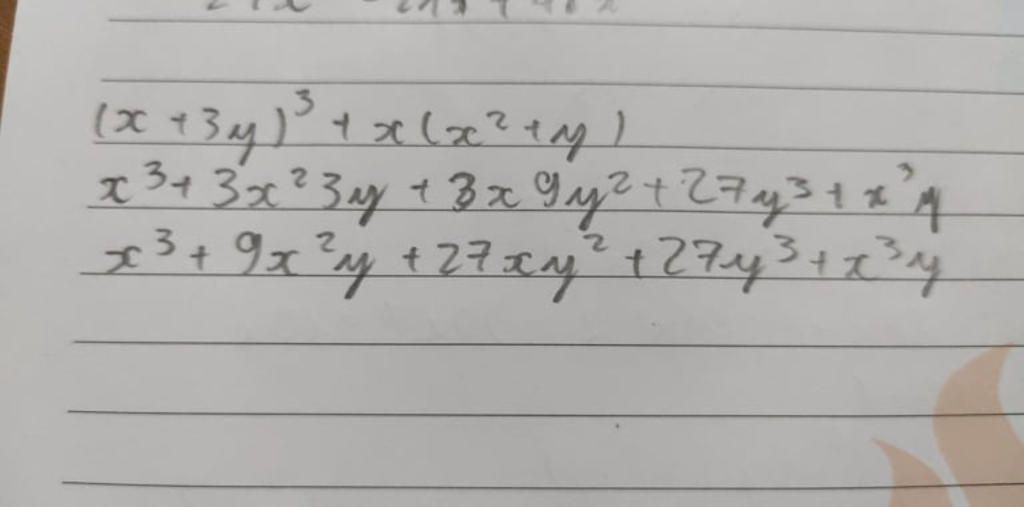 (x + 3y)³ + x(x² + y)
x³ + 3x²3y + 3x9y² + 27y³ + x³y
x³ + 9x²y + 27xy² + 27y³ + x³y